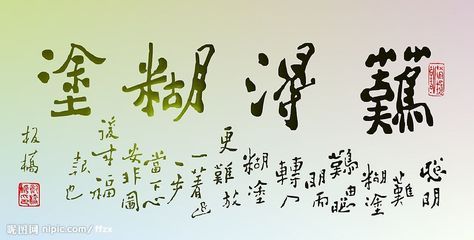 難得糊塗
聰明
難糊塗
難由聰
明而
轉入
糊塗
更難放
一著退
一步
當下心
安非圖
後来福
報也
板橋
昵图网 nipic.com/ffzx